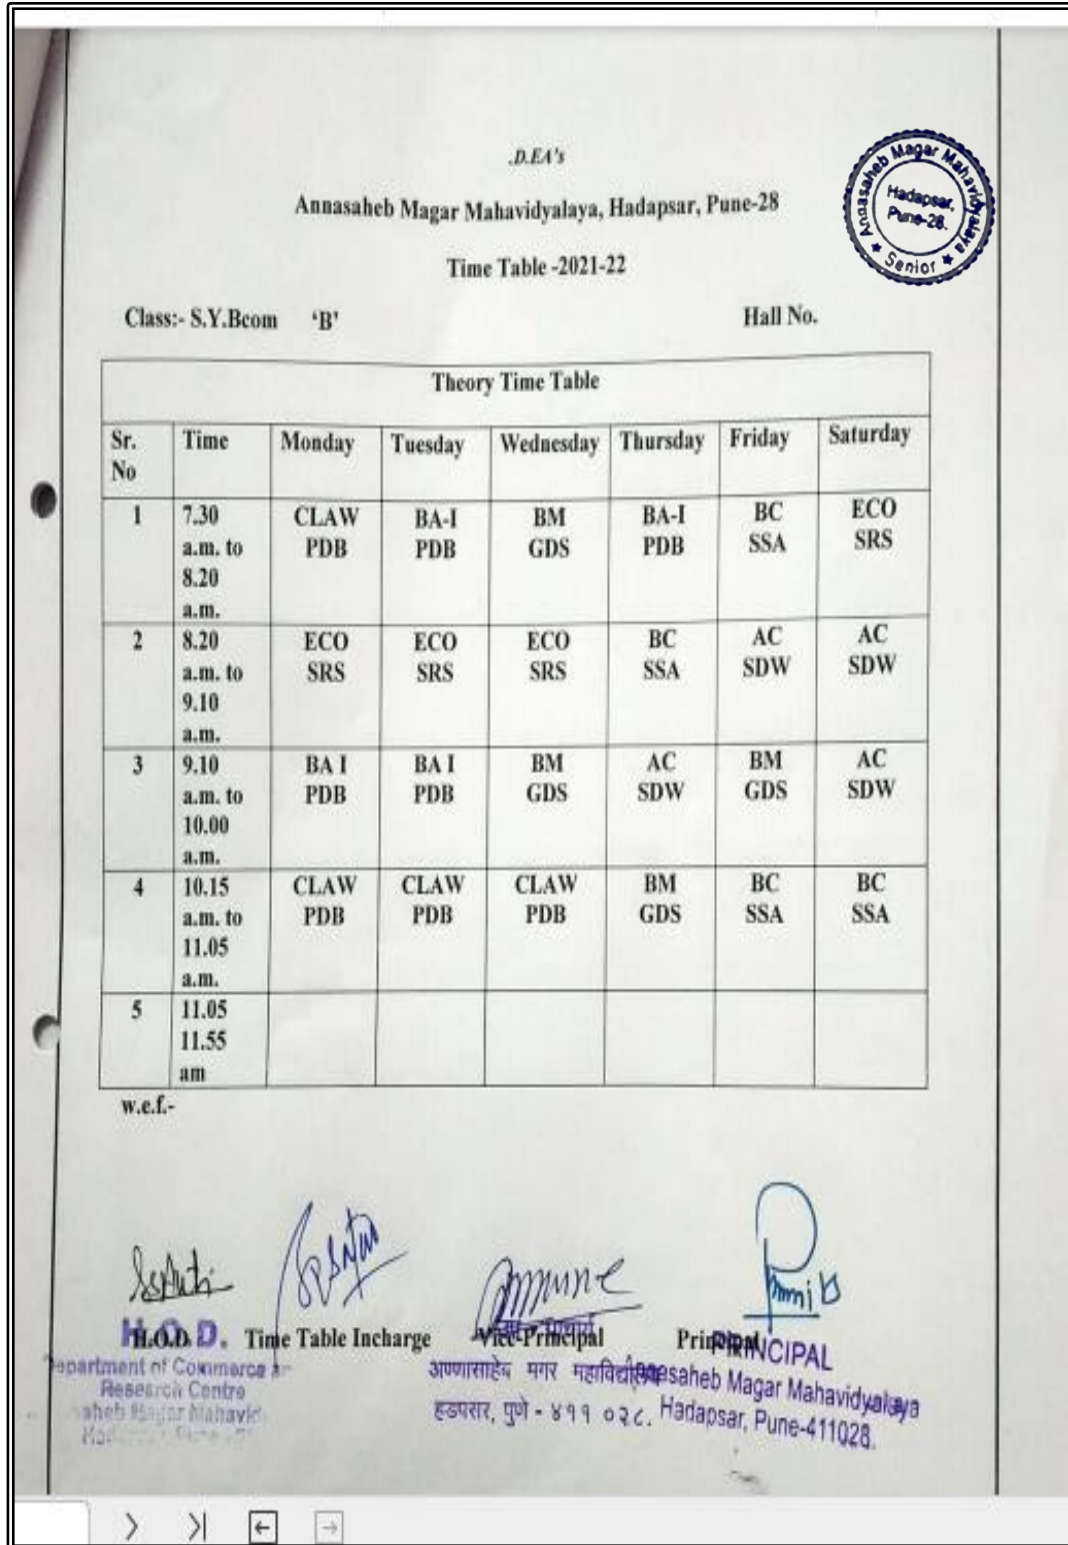 .D.EA's
Annasaheb Magar Mahavidyalaya, Hadapsar, Pune-28
Annasaheb Magar Mahavidyalaya
Hadapsar,
Pune-28.
★ Senior ★
Time Table -2021-22
Class:- S.Y.Bcom 'B' Hall No.
Theory Time Table
Sr. No Time Monday Tuesday Wednesday Thursday Friday Saturday
1 7.30 a.m. to 8.20 a.m. CLAW PDB BA-I PDB BM GDS BA-I PDB BC SSA ECO SRS
2 8.20 a.m. to 9.10 a.m. ECO SRS ECO SRS ECO SRS BC SSA AC SDW AC SDW
3 9.10 a.m. to 10.00 a.m. BA I PDB BA I PDB BM GDS AC SDW BM GDS AC SDW
4 10.15 a.m. to 11.05 a.m. CLAW PDB CLAW PDB CLAW PDB BM GDS BC SSA BC SSA
5 11.05 11.55 am
w.e.f.-
H.O.D Time Table Incharge Vice-Principal Principal
H.O.D.
Department of Commerce
Research Centre
अण्णासाहेब मगर महाविद्यालय
हडपसर, पुणे - ४११ ०२८.
PRINCIPAL
Annasaheb Magar Mahavidyalaya
Hadapsar, Pune-411028.